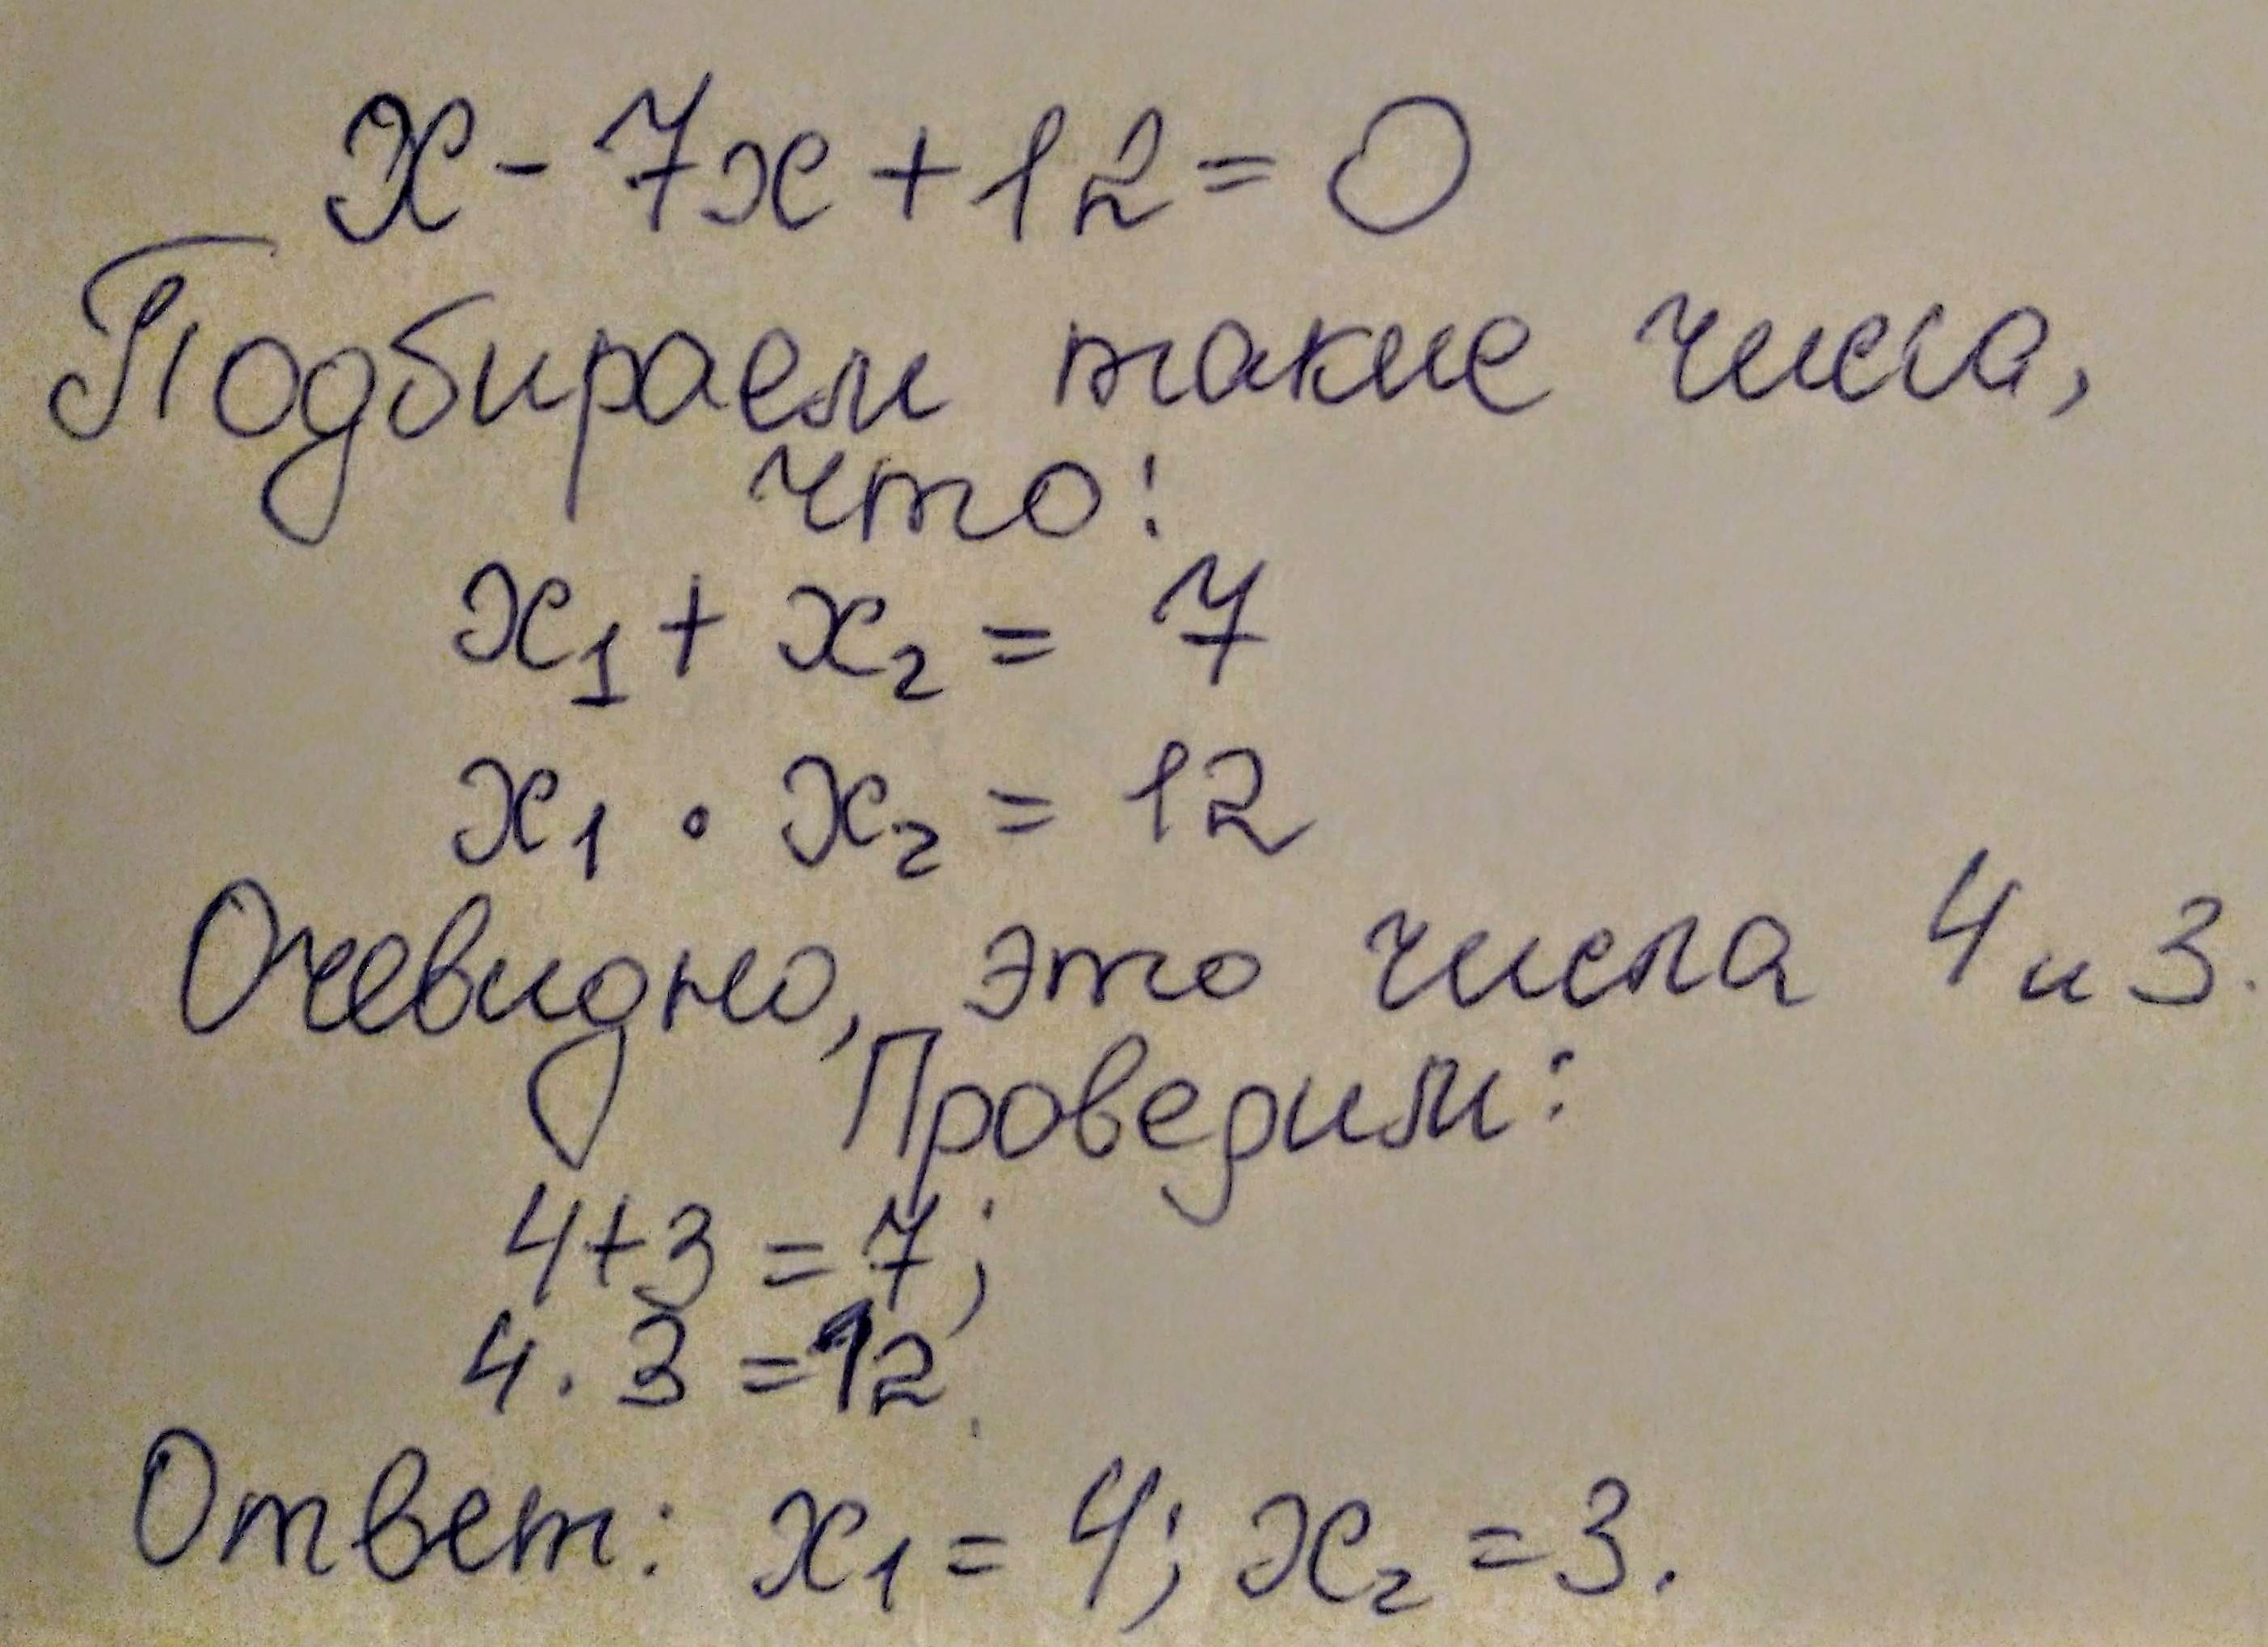 x - 7x + 12 = 0
Подбираем такие числа,
что:
x₁ + x₂ = 7
x₁ · x₂ = 12
Очевидно, это числа 4 и 3.
Проверим:
4+3 = 7;
4 · 3 = 12.
Ответ: x₁ = 4; x₂ = 3.